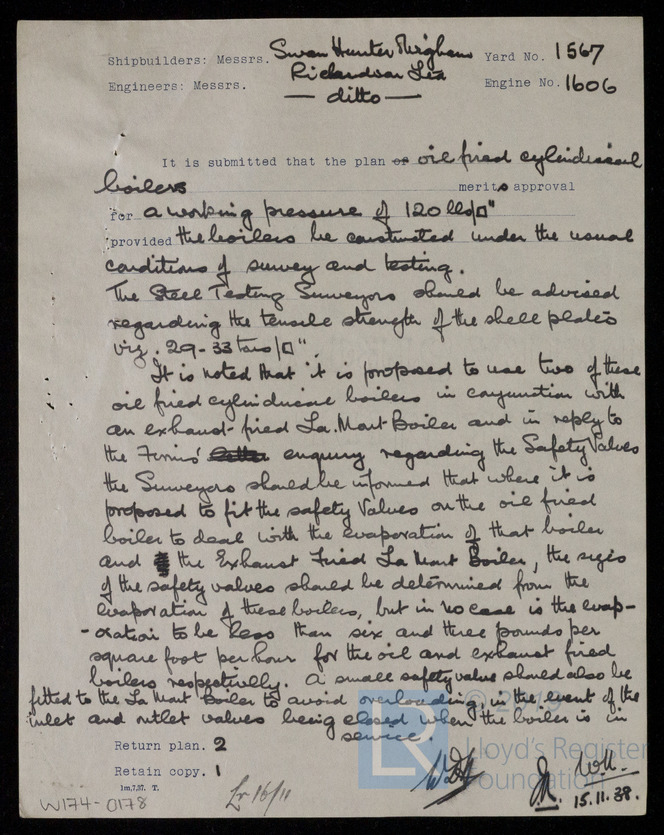 Shipbuilders: Messrs. Swan Hunter Wigham Yard No. 1567
Richardson Ltd
Engineers: Messrs. — ditto — Engine No. 1606
It is submitted that the plan of oil fired cylindrical
boilers merits approval
for a working pressure of 120 lbs/□"
provided the boilers be constructed under the usual
conditions of survey and testing.
The Steel Testing Surveyors should be advised
regarding the tensile strength of the shell plates
viz. 29-33 tons/□".
It is noted that it is proposed to use two of these
oil fired cylindrical boilers in conjunction with
an exhaust-fired La.Mont Boiler and in reply to
the Firms' letter enquiry regarding the Safety Valves
the Surveyors should be informed that where it is
proposed to fit the safety Valves on the oil fired
boiler to deal with the evaporation of that boiler
and the Exhaust Fired La Mont Boiler, the sizes
of the safety valves should be determined from the
evaporation of these boilers, but in no case is the evap-
-oration to be less than six and three pounds per
square foot per hour for the oil and exhaust fired
boilers respectively. A small safety valve should also be
fitted to the La Mont Boiler to avoid overloading, in the event of the
inlet and outlet valves being closed when the boiler is in
service.
Return plan. 2
Retain copy. 1
1m,7,37. T.
W174-0178
16/11
W.H.
15.11.38.
© 2019
LR
Lloyd's Register
Foundation